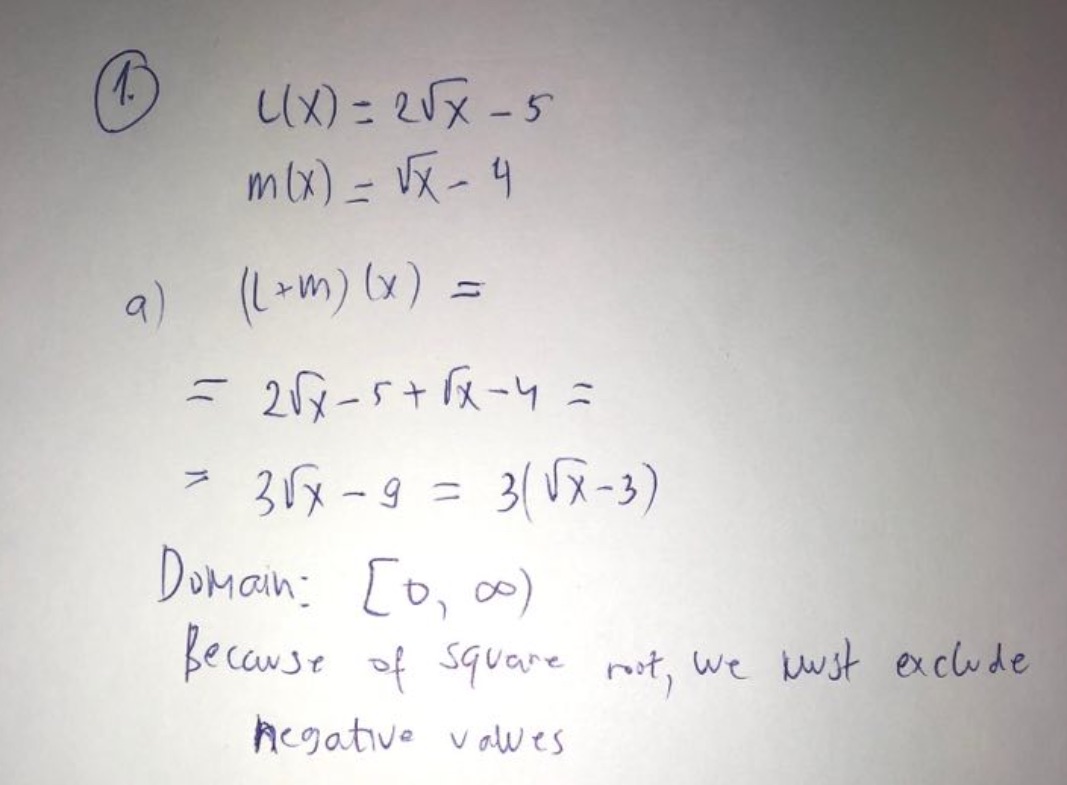 1.
L(x) = 2√x - 5
m(x) = √x - 4
a) (L+m)(x) =
= 2√x - 5 + √x - 4 =
= 3√x - 9 = 3(√x - 3)
Domain: [0, ∞)
Because of square root, we must exclude
negative values